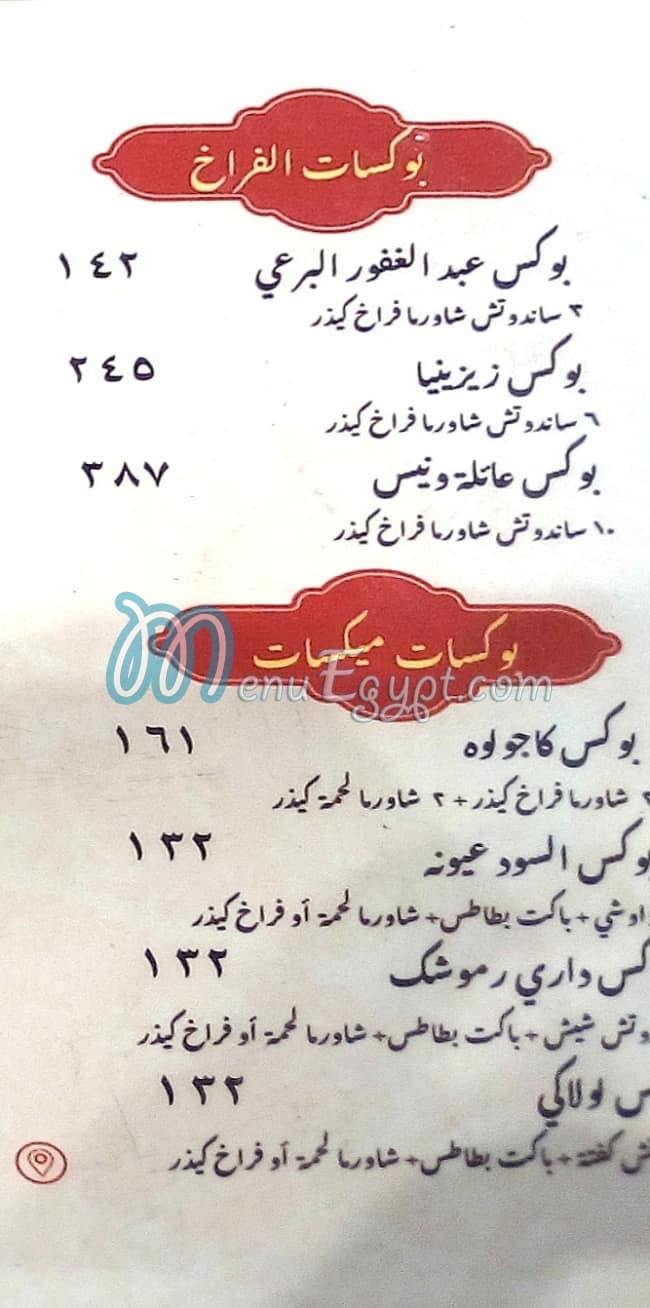 بوكسات الفراخ
بوكس عبد الغفور البرعي ١٤٢
٣ ساندوتش شاورما فراخ كيذر
بوكس زيزينيا ٢٤٥
٦ ساندوتش شاورما فراخ كيذر
بوكس عائلة ونيس ٣٨٧
١٠ ساندوتش شاورما فراخ كيذر
بوكسات ميكسات
MenuEgypt.com
بوكس كاجولوه ١٦١
٢ شاورما فراخ كيذر + ٢ شاورما لحمة كيذر
بوكس السود عيونه ١٣٢
اوشي + باكت بطاطس + شاورما لحمة أو فراخ كيذر
كس داري رموشك ١٣٢
وتش شيش + باكت بطاطس + شاورما لحمة أو فراخ كيذر
س لولاكي ١٣٢
ش كفتة + باكت بطاطس + شاورما لحمة أو فراخ كيذر